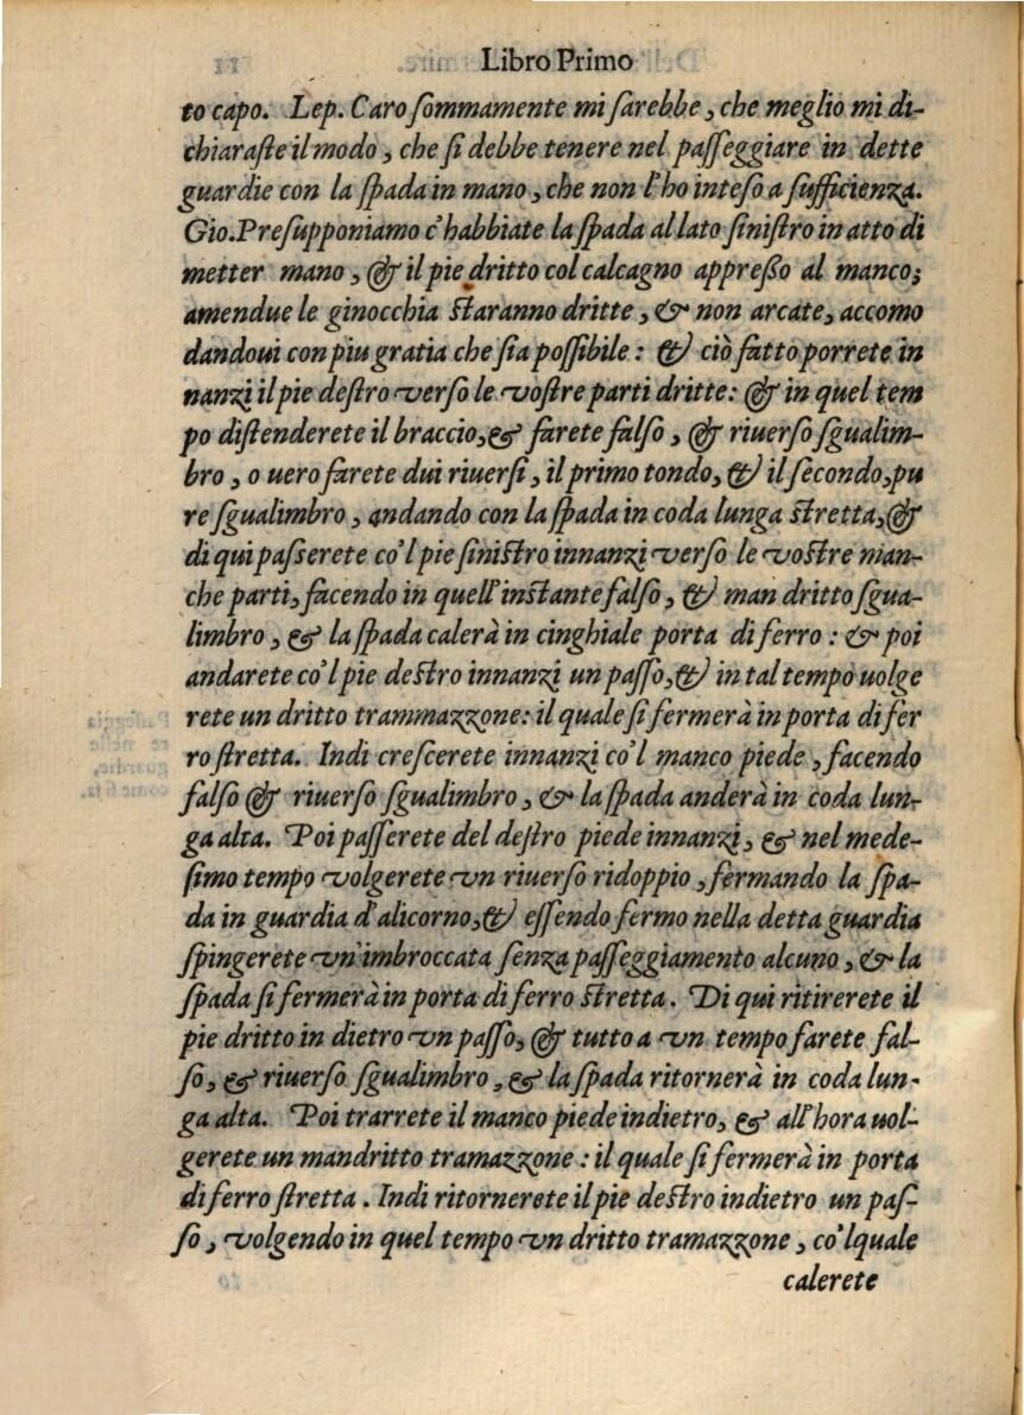 Libro Primo
to capo. Lep. Caro ſommamente mi ſarebbe, che meglio mi di-
chiaraſte il modo, che ſi debbe tenere nel paſſeggiare in dette
guardie con la ſpada in mano, che non l'ho inteſo a ſufficienza.
Gio. Preſupponiamo c'habbiate la ſpada al lato ſiniſtro in atto di
metter mano, & il pie dritto col calcagno appreßo al manco;
amendue le ginocchia ſtaranno dritte, & non arcate, accomo
dandoui con piu gratia che ſia poſſibile: & ciò fatto porrete in
nanzi il pie deſtro verſo le voſtre parti dritte: & in quel tem
po diſtenderete il braccio, & farete falſo, & riuerſo ſgualim-
bro, o uero farete dui riuerſi, il primo tondo, & il ſecondo, pu
re ſgualimbro, andando con la ſpada in coda lunga ſtretta, &
di qui paſserete co'l pie ſiniſtro innanzi verſo le voſtre man-
che parti, facendo in quell'inſtante falſo, & man dritto ſgua-
limbro, & la ſpada calerà in cinghiale porta di ferro: & poi
andarete co'l pie deſtro innanzi un paſſo, & in tal tempo uolge
rete un dritto trammazzone: il quale ſi fermerà in porta di fer
ro ſtretta. Indi creſcerete innanzi co'l manco piede, facendo
falſo & riuerſo ſgualimbro, & la ſpada anderà in coda lun-
ga alta. Poi paſſerete del deſtro piede innanzi, & nel mede-
ſimo tempo volgerete vn riuerſo ridoppio, fermando la ſpa-
da in guardia d'alicorno, & eſſendo fermo nella detta guardia
ſpingerete vn'imbroccata ſenza paſſeggiamento alcuno, & la
ſpada ſi fermerà in porta di ferro ſtretta. Di qui ritirerete il
pie dritto in dietro vn paſſo, & tutto a vn tempo farete fal-
ſo, & riuerſo ſgualimbro, & la ſpada ritornerà in coda lun-
ga alta. Poi trarrete il manco piede indietro, & all'hora uol-
gerete un mandritto tramazzone: il quale ſi fermerà in porta
di ferro ſtretta. Indi ritornerete il pie deſtro indietro un paſ-
ſo, volgendo in quel tempo vn dritto tramazzone, co'lquale
calerete